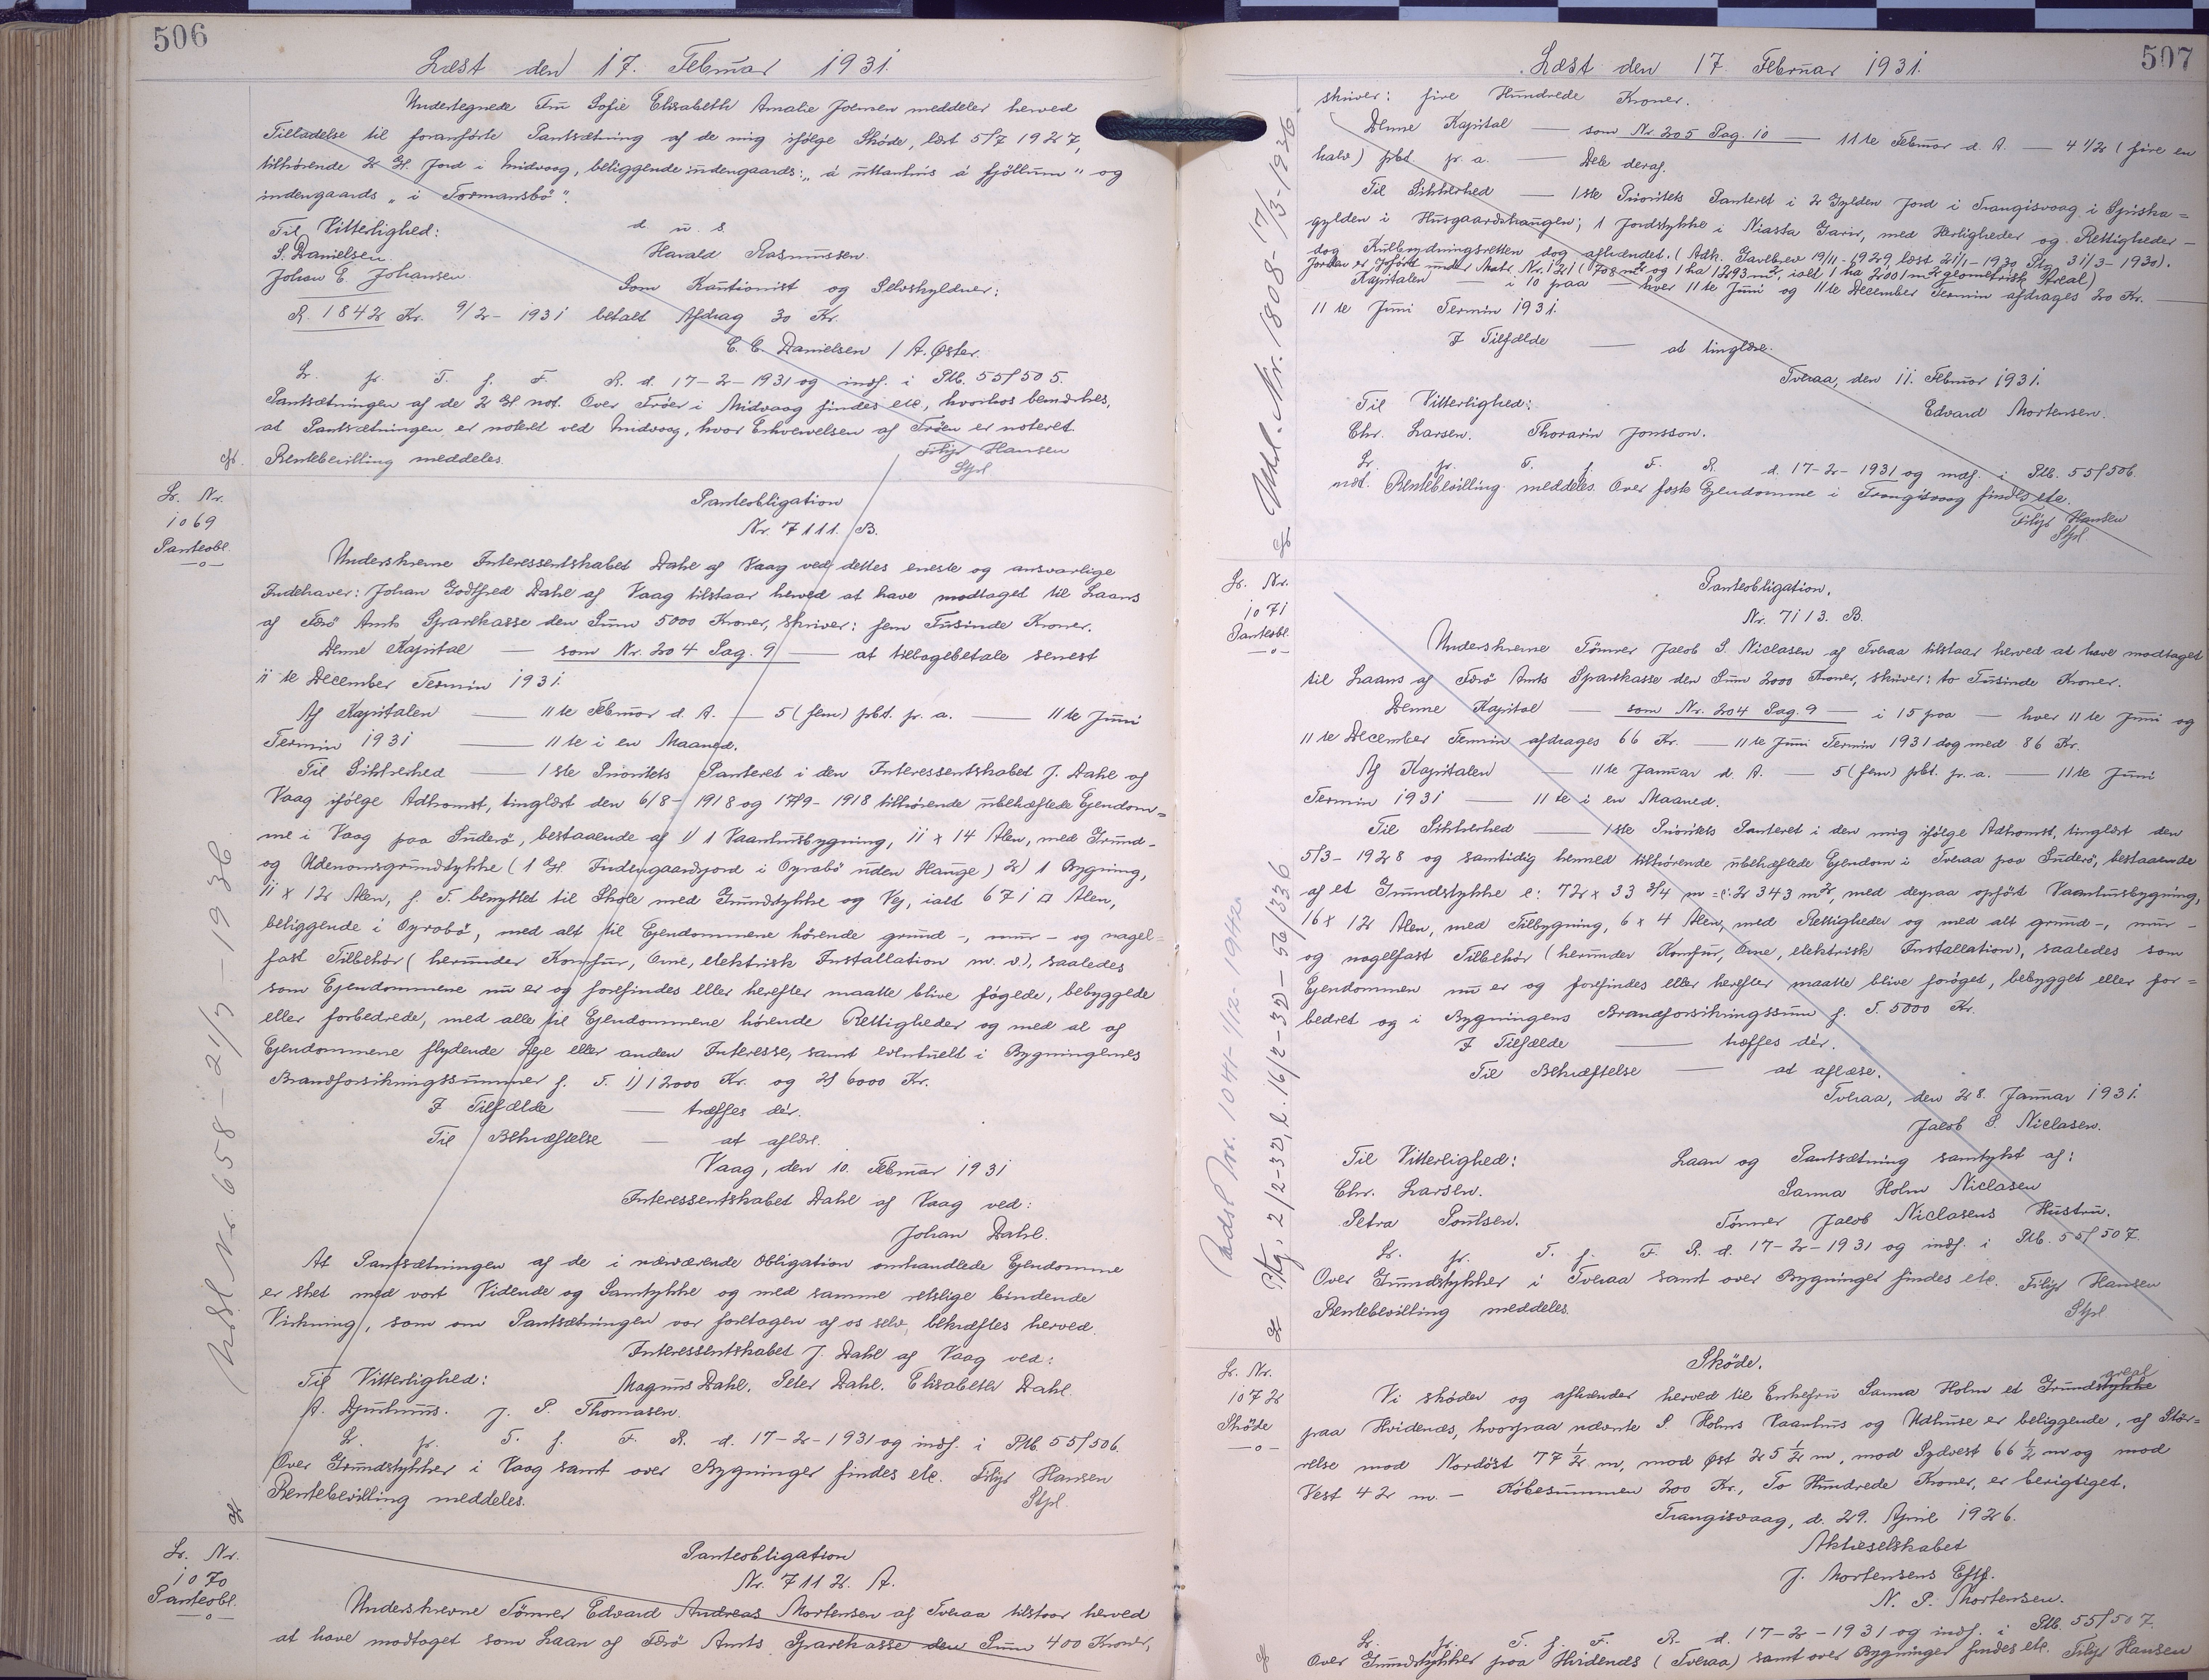 506
Læst den 17. Februar 1931.
Undertegnede Fru Sofie Elisabeth Amalie Joensen meddeler herved
Tilladelse til foranførte Pantsætning af de mig ifølge Skøde, læst 5/7 1927,
tilhørende 2 Gl. Jord i Midvaag, beliggende indengaards: „á uttanhús á fjøllum" og
indengaards „i Tormansbø".
Til Vitterlighed:
d. u. s.
S. Danielsen.
Harald Rasmussen.
Johan E. Johansen.
Som Kautionist og Selvskyldner:
R. 1842 Kr. 9/2-1931 betalt Afdrag 30 Kr.
C. C. Danielsen / A. Øster.
Lr. fr. T. f. F. R. d. 17-2-1931 og indf. i Ptb. 55/505.
Pantsætningen af de 2 Gl. not. Over Trøer i Midvaag findes etc, hvorhos bemærkes,
at Pantsætningen er noteret ved Midvaag, hvor Erhvervelsen af Trøen er noteret.
Rentebevilling meddeles.
Filip Hansen
Stpl
Lr. Nr.
1069
Panteobl.
—o—
Panteobligation
Nr. 7111. B.
Underskrevne Interessentskabet Dahl af Vaag ved dettes eneste og ansvarlige
Indehaver: Johan Godtfred Dahl af Vaag tilstaar herved at have modtaget til Laans
af Færø Amts Sparekasse den Sum 5000 Kroner, skriver: fem Tusinde Kroner.
Denne Kapital — som Nr. 204 Pag. 9 — at tilbagebetale senest
11te December Termin 1931.
Af Kapitalen — 11te Februar d. A. — 5 (fem) pCt. p. a. — 11te Juni
Termin 1931 — 11te i en Maaned.
Til Sikkerhed — 1ste Prioritets Panteret i den Interessentskabet J. Dahl af
Vaag ifølge Adkomst, tinglæst den 6/8-1918 og 17/9-1918 tilhørende ubehæftede Ejendom=
me i Vaag paa Suderø, bestaaende af 1) 1 Vaanhusbygning, 11 x 14 Alen, med Grund-
og Udenomsgrundstykke (1 Gl. Indengaardsjord i Oyrabø uden Hauge) 2) 1 Bygning,
11 x 12 Alen, f. T. benyttet til Skole med Grundstykke og Vej, ialt 671 □ Alen,
beliggende i Oyrabø, med alt til Ejendommene hørende grund-, mur- og nagel=
fast Tilbehør (herunder Komfur, Ovne, elektrisk Installation m. v.), saaledes
som Ejendommene nu er og forefindes eller herefter maatte blive føgede, bebyggede
eller forbedrede, med alle til Ejendommene hørende Rettigheder og med al af
Ejendommene flydende Leje eller anden Interesse, samt eventuelt i Bygningernes
Brandforsikringssummer f. T. 1) 12000 Kr. og 2) 6000 Kr.
I Tilfælde — træffes dér.
Til Bekræftelse — at aflæse.
Vaag, den 10. Februar 1931
Interessentskabet Dahl af Vaag ved:
Johan Dahl.
At Pantsætningen af de i nærværende Obligation omhandlede Ejendomme
er sket med vort Vidende og Samtykke og med samme retslige bindende
Virkning, som om Pantsætningen var foretagen af os selv, bekræftes herved.
Interessentskabet J. Dahl af Vaag ved:
Til Vitterlighed:
Magnus Dahl. Peter Dahl. Elisabeth Dahl.
A. Djurhuus. J. P. Thomasen.
Lr. fr. T. f. F. R. d. 17-2-1931 og indf. i Ptb. 55/506.
Over Grundstykker i Vaag samt over Bygninger findes etc. Filip Hansen
Rentebevilling meddeles.
Stpl.
Udsl. Nr. 658 - 21/3 - 1936
Lr. Nr.
1070
Panteobl.
—o—
Panteobligation
Nr. 7112. A.
Underskrevne Tømrer Edvard Andreas Mortensen af Tveraa tilstaar herved
at have modtaget som Laan af Færø Amts Sparekasse den Sum 400 Kroner,
507
Læst den 17. Februar 1931.
skriver: fire Hundrede Kroner.
Denne Kapital — som Nr. 205 Pag. 10 — 11te Februar d. A. — 4 1/2 (fire en
halv) pCt. p. a. — Dele deraf.
Til Sikkerhed — 1ste Prioritets Panteret i 2 Gylden Jord i Trangisvaag i Spiska=
gylden i Husgaardshaugen; 1 Jordstykke i Niasta Garir, med Herligheder og Rettigheder —
dog Kulbrydningsretten dog afhændet. (Adk. Gavebrev 19/11-1929 læst 21/1-1930 Ptg 31/3-1930).
Jorden er opført under Matr. Nr. 121 (708 m² og 1 ha 1293 m², ialt 1 ha 2001 m² geometrisk Areal)
Kapitalen — i 10 paa — hver 11te Juni og 11te December Termin afdrages 20 Kr. —
11te Juni Termin 1931.
I Tilfælde — at tinglæse.
Tveraa, den 11. Februar 1931.
Til Vitterlighed:
Edvard Mortensen.
Chr. Larsen. Thorarin Jonsson.
Lr. fr. T. f. F. R. d. 17-2-1931 og indf. i Ptb. 55/506
not. Rentebevilling meddeles. Over faste Ejendomme i Trangisvaag findes etc.
Filip Hansen
Stpl
Udsl. Nr. 1808 - 17/3-1936.
Lr. Nr.
1071
Panteobl.
—o—
Panteobligation.
Nr. 7113. B.
Underskrevne Tømrer Jacob S. Niclasen af Tveraa tilstaar herved at have modtaget
til Laans af Færø Amts Sparekasse den Sum 2000 Kroner, skriver: to Tusinde Kroner.
Denne Kapital — som Nr. 204 Pag. 9 — i 15 paa — hver 11te Juni og
11te December Termin afdrages 66 Kr. — 11te Juni Termin 1931 dog med 86 Kr.
Af Kapitalen — 11te Januar d. A. — 5 (fem) pCt. p. a. — 11te Juni
Termin 1931 — 11te i en Maaned.
Til Sikkerhed — 1ste Prioritets Panteret i den mig ifølge Adkomst, tinglæst den
5/3-1928 og samtidig hermed tilhørende ubehæftede Ejendom i Tveraa paa Suderø, bestaaende
af et Grundstykke e: 72 x 33 3/4 m = 2343 m², med derpaa opført Vaanhusbygning,
16 x 12 Alen, med Tilbygning, 6 x 4 Alen, med Rettigheder og med alt grund-, mur-
og nagelfast Tilbehør (herunder Komfur, Ovne, elektrisk Installation), saaledes som
Ejendommen nu er og forefindes eller herefter maatte blive forøget, bebygget eller for=
bedret og i Bygningens Brandforsikringssum f. T. 5000 Kr.
I Tilfælde — træffes dér.
Til Bekræftelse — at aflæse.
Tveraa, den 28. Januar 1931.
Jacob S. Niclasen.
Til Vitterlighed:
Laan og Pantsætning samtykt af:
Chr. Larsen.
Sanna Holm Niclasen
Petra Poulsen.
Tømrer Jacob Niclasens Hustru.
Lr. fr. T. f. F. R. d. 17-2-1931 og indf. i Ptb. 55/507.
Over Grundstykker i Tveraa samt over Bygninger findes etc. Filip Hansen
Rentebevilling meddeles.
Stpl
Udsl Nr. 1041-1/12-1942
Ptg. 2/2-32, l. 16/2-32 - 56/336
Lr. Nr.
1072
Skøde
—o—
Skøde.
areal
Vi skøder og afhænder herved til Enkefru Sanna Holm et Grundstykke
paa Hvidenæs, hvorpaa nævnte S. Holms Vaanhus og Udhuse er beliggende, af Stør=
relse mod Nordøst 77 1/2 m, mod Øst 25 1/2 m, mod Sydvest 66 1/2 m og mod
Vest 42 m. — Købesummen 200 Kr., To Hundrede Kroner, er berigtiget.
Trangisvaag, d. 29. April 1926.
Aktieselskabet
J. Mortensens Eftf.
N. P. Mortensen.
Lr. fr. T. f. F. R. d. 17-2-1931 og indf. i Ptb. 55/507.
Over Grundstykker paa Hvidenæs (Tveraa) samt over Bygninger findes etc. Filip Hansen